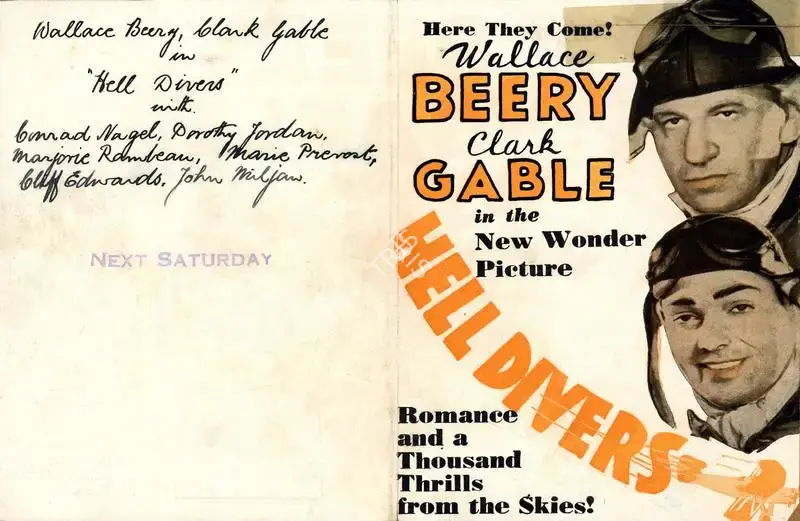 Wallace Beery, Clark Gable
in
"Hell Divers"
with
Conrad Nagel, Dorothy Jordan,
Marjorie Rambeau, Marie Prevost,
Cliff Edwards, John Miljan.
NEXT SATURDAY
Here They Come!
Wallace
BEERY
Clark
GABLE
in the
New Wonder
Picture
HELL DIVERS
Romance
and a
Thousand
Thrills
from the Skies!